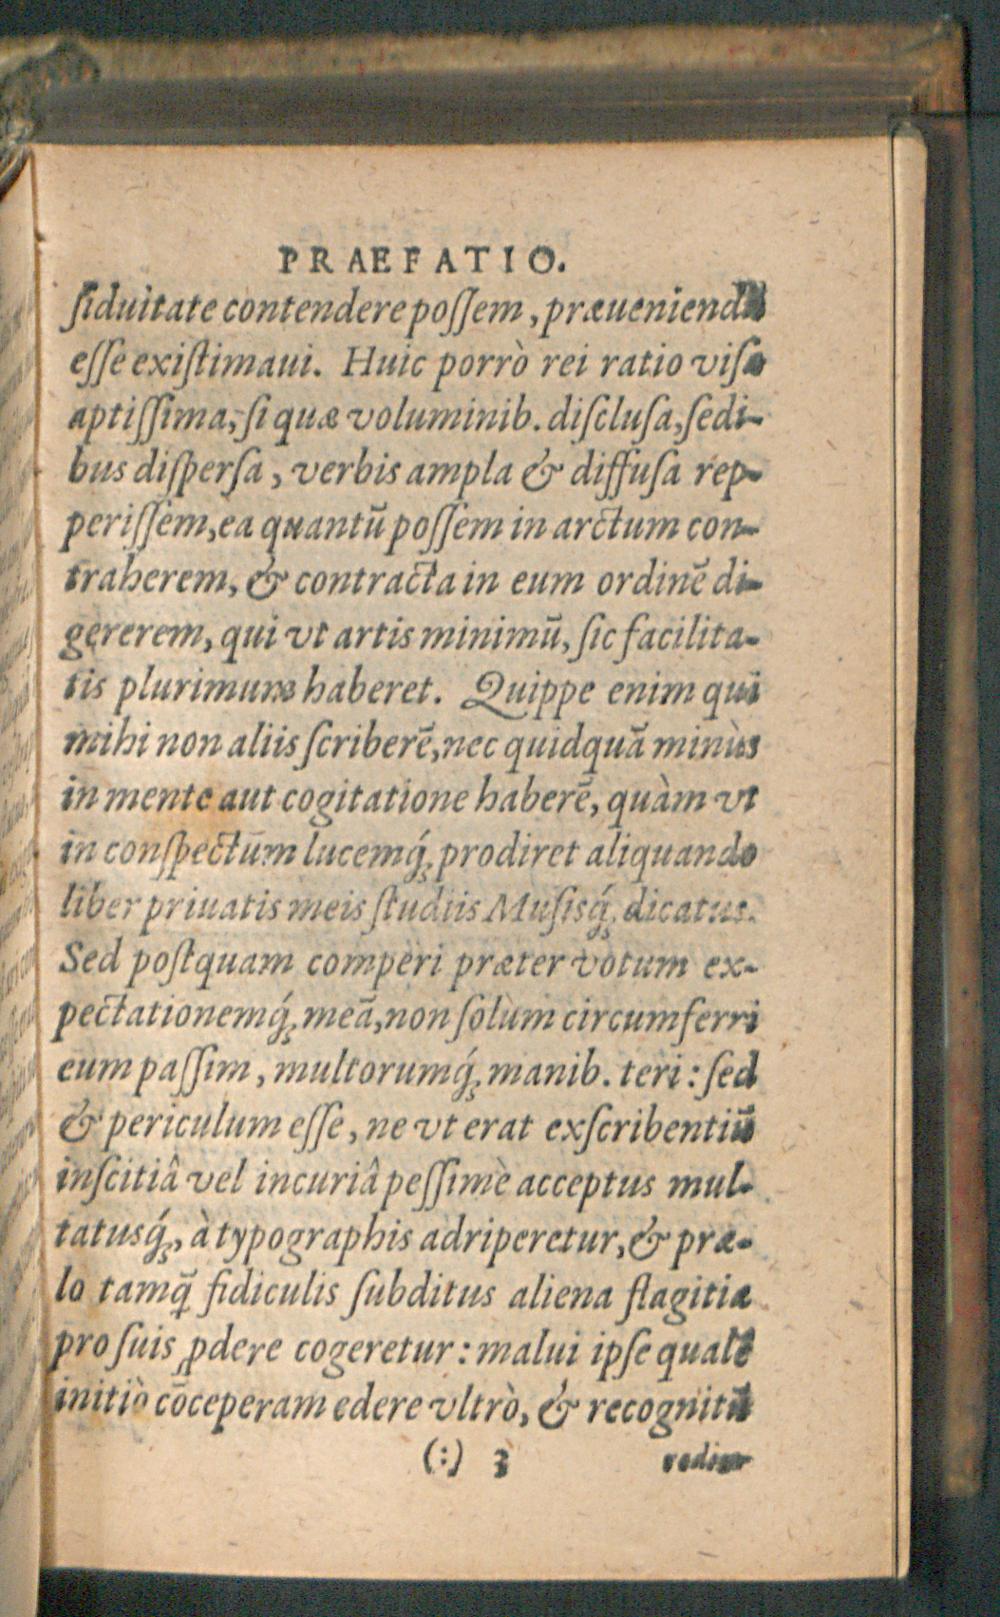 PRAEFATIO.
ſiduitate contendere poſſem, præueniendũ
eſſe exiſtimaui. Huic porrò rei ratio viſa
aptiſſima, ſi quæ voluminib. diſcluſa, ſedi-
bus diſperſa, verbis ampla & diffuſa rep-
periſſem, ea quantũ poſſem in arctum con-
traherem, & contracta in eum ordinẽ di-
gererem, qui vt artis minimũ, ſic facilita-
tis plurimum haberet. Quippe enim qui
mihi non aliis ſcriberẽ, nec quidquã minùs
in mente aut cogitatione haberẽ, quàm vt
in conſpectum lucemq́; prodiret aliquando
liber priuatis meis ſtudiis Muſisq́; dicatus.
Sed poſtquam comperi præter votum ex-
pectationemq́; meã, non ſolùm circumferri
eum paſſim, multorumq́; manib. teri: ſed
& periculum eſſe, ne vt erat exſcribentiũ
inſcitiâ vel incuriâ peſſimè acceptus mul-
tatusq́;, à typographis adriperetur, & præ-
lo tamq̃ fidiculis ſubditus aliena flagitia
pro ſuis ꝓdere cogeretur: malui ipſe qualẽ
initiò cõceperam edere vltrò, & recognitũ
(:) 3